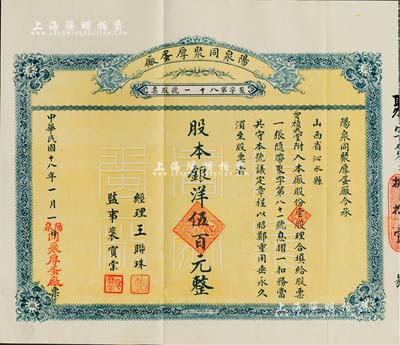 上海陽明拍賣
陽泉同聚厚蛋廠
聚字第八十一號股票
陽泉同聚厚蛋廠今承
山西省沁水縣
附入本廠股份壹股理合填給股票
一張隨帶聚字第八十一號息摺一扣務當
共守本號議定章程以昭鄭重用垂永久
須至股票者
股本銀洋伍百元整
經理 王聯珠
監事 裴寶棠
中華民國十八年一月一日
陽泉同聚厚蛋廠票